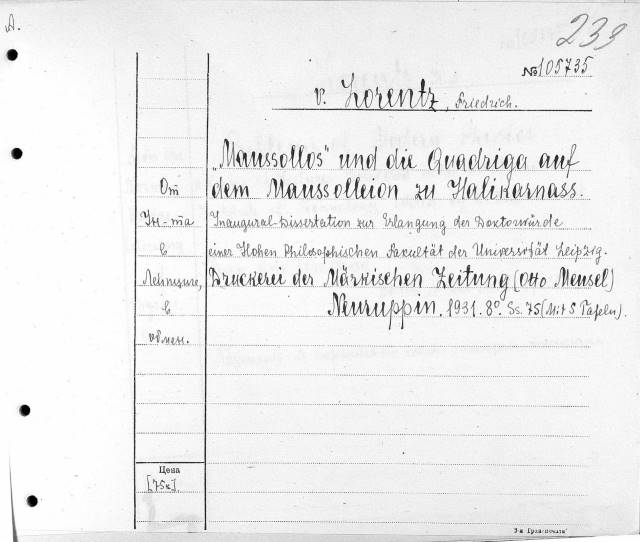 A.
233
№105735
v. Lorentz, Friedrich.
"Maussollos" und die Quadriga auf
dem Maussolleion zu Halikarnass.
Inaugural-Dissertation zur Erlangung der Doktorwürde
einer Hohen Philosophischen Fakultät der Universität Leipzig.
Druckerei der Märkischen Zeitung (Otto Meusel)
Neuruppin. 1931. 8°. Ss. 75 (Mit 5 Tafeln).
От
Ун-та
в
Лейпциге,
в
обмен.
Цена
[75к].